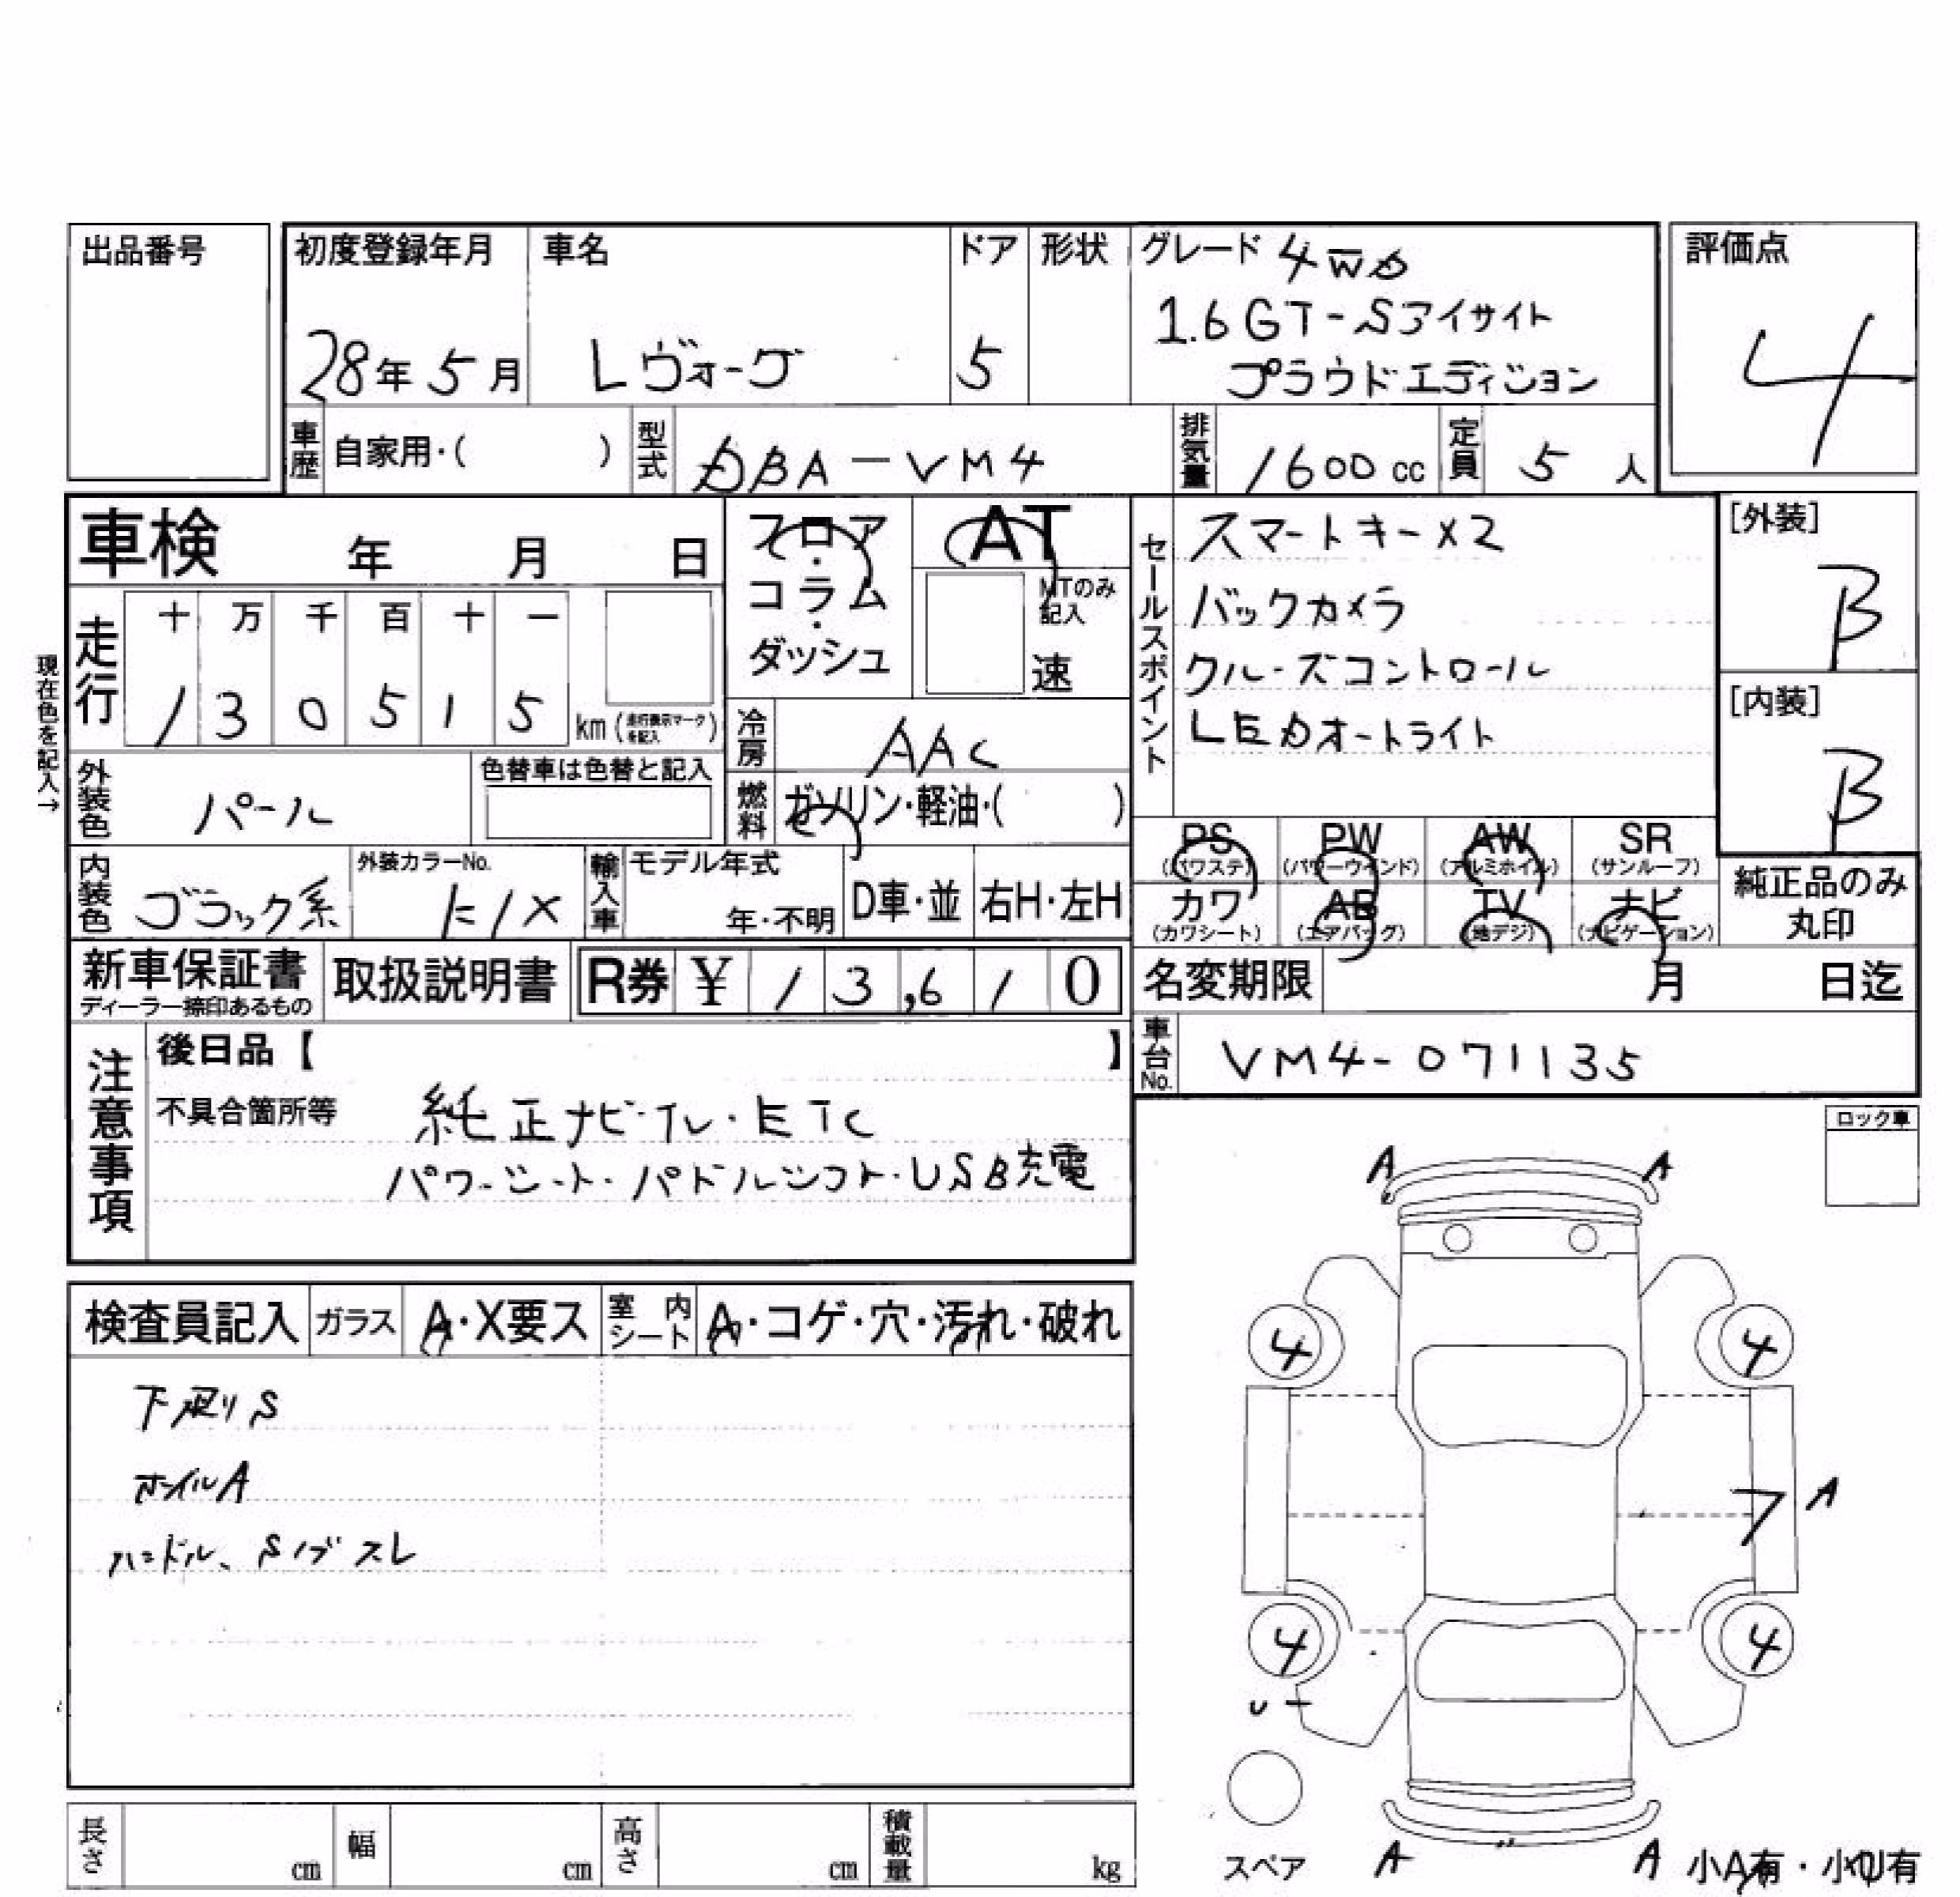 出品番号
初度登録年月 車名 ドア 形状 グレード 4WD
28年5月 レヴォーグ 5 1.6GT-Sアイサイト
プラウドエディション
評価点
4
車歴 自家用・( ) 型式 DBA-VM4 排気量 1600cc 定員 5人
車検 年 月 日
フロア・コラム・ダッシュ
AT
MTのみ記入
速
セールスポイント
スマートキー×2
バックカメラ
クルーズコントロール
LEDオートライト
[外装]
B
[内装]
B
現在色を記入→
走行 十 万 千 百 十 一
1 3 0 5 1 5 km(走行表示マークを記入)
冷房 AAC
燃料 ガソリン・軽油・( )
外装色 パール 色替車は色替と記入
内装色 ブラック系 外装カラーNo. K1X 輸入車 モデル年式 年・不明 D車・並 右H・左H
PS(パワステ) PW(パワーウインド) AW(アルミホイル) SR(サンルーフ)
カワ(カワシート) AB(エアバッグ) TV(地デジ) ナビ(ナビゲーション)
純正品のみ丸印
新車保証書 ディーラー捺印あるもの 取扱説明書 R券 ¥ 13,610
名変期限 月 日迄
車台No. VM4-071135
注意事項
後日品【 】
不具合箇所等 純正ナビ・TV・ETC
パワーシート・パドルシフト・USB充電
ロック車
検査員記入 ガラス A・X要ス 室内シート A・コゲ・穴・汚れ・破れ
下廻りS
ホイルA
ハンドル、Sノブスレ
A A
4 4
7 A
4 4
スペア A A 小A有・小U有
長さ cm 幅 cm 高さ cm 積載量 kg